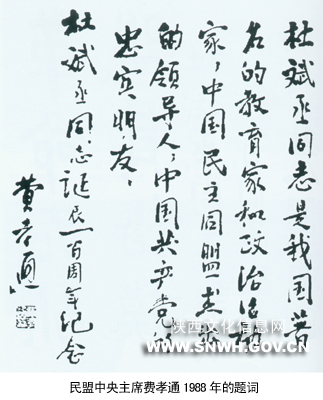 杜斌丞同志是我国著
名的教育家和政治活动
家，中国民主同盟杰出
的领导人，中国共产党的
忠实朋友。
杜斌丞同志诞辰一百周年纪念
费孝通
陕西文化信息网
WWW.SNWH.GOV.CN
民盟中央主席费孝通 1988 年的题词